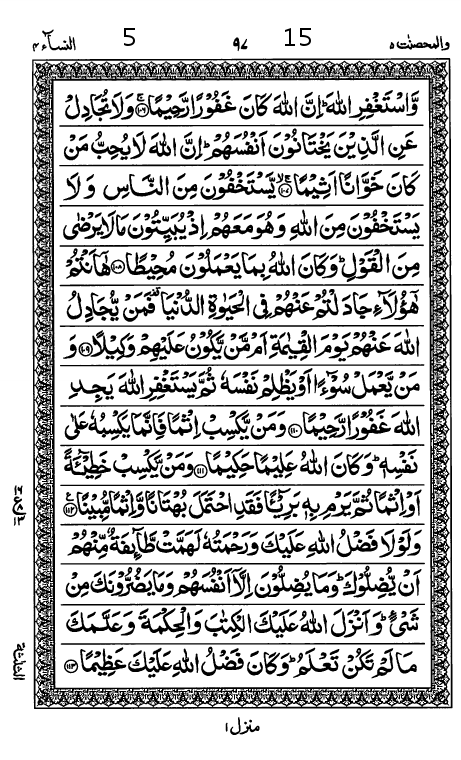 والمحصنت ۵ 15 ۹۷ 5 النسآء ۴
وَّاسْتَغْفِرِ اللّٰهَ ؕ اِنَّ اللّٰهَ كَانَ غَفُوْرًا رَّحِیْمًا ۚ﴿۱۰۶﴾ وَ لَا تُجَادِلْ
عَنِ الَّذِیْنَ یَخْتَانُوْنَ اَنْفُسَهُمْ ؕ اِنَّ اللّٰهَ لَا یُحِبُّ مَنْ
كَانَ خَوَّانًا اَثِیْمًا ۚۙ﴿۱۰۷﴾ یَّسْتَخْفُوْنَ مِنَ النَّاسِ وَ لَا
یَسْتَخْفُوْنَ مِنَ اللّٰهِ وَ هُوَ مَعَهُمْ اِذْ یُبَیِّتُوْنَ مَا لَا یَرْضٰی
مِنَ الْقَوْلِ ؕ وَ كَانَ اللّٰهُ بِمَا یَعْمَلُوْنَ مُحِیْطًا ﴿۱۰۸﴾ هٰۤاَنْتُمْ
هٰۤؤُلَآءِ جَادَلْتُمْ عَنْهُمْ فِی الْحَیٰوةِ الدُّنْیَا ۟ فَمَنْ یُّجَادِلُ
اللّٰهَ عَنْهُمْ یَوْمَ الْقِیٰمَةِ اَمْ مَّنْ یَّكُوْنُ عَلَیْهِمْ وَكِیْلًا ﴿۱۰۹﴾ وَ
مَنْ یَّعْمَلْ سُوْٓءًا اَوْ یَظْلِمْ نَفْسَهٗ ثُمَّ یَسْتَغْفِرِ اللّٰهَ یَجِدِ
اللّٰهَ غَفُوْرًا رَّحِیْمًا ﴿۱۱۰﴾ وَ مَنْ یَّكْسِبْ اِثْمًا فَاِنَّمَا یَكْسِبُهٗ عَلٰی
نَفْسِهٖ ؕ وَ كَانَ اللّٰهُ عَلِیْمًا حَكِیْمًا ﴿۱۱۱﴾ وَ مَنْ یَّكْسِبْ خَطِیْٓـَٔةً
اَوْ اِثْمًا ثُمَّ یَرْمِ بِهٖ بَرِیْٓـًٔا فَقَدِ احْتَمَلَ بُهْتَانًا وَّ اِثْمًا مُّبِیْنًا ﴿۱۱۲﴾ع
وَ لَوْ لَا فَضْلُ اللّٰهِ عَلَیْكَ وَ رَحْمَتُهٗ لَهَمَّتْ طَّآئِفَةٌ مِّنْهُمْ
اَنْ یُّضِلُّوْكَ ؕ وَ مَا یُضِلُّوْنَ اِلَّاۤ اَنْفُسَهُمْ وَ مَا یَضُرُّوْنَكَ مِنْ
شَیْءٍ ؕ وَ اَنْزَلَ اللّٰهُ عَلَیْكَ الْكِتٰبَ وَ الْحِكْمَةَ وَ عَلَّمَكَ
مَا لَمْ تَكُنْ تَعْلَمُ ؕ وَ كَانَ فَضْلُ اللّٰهِ عَلَیْكَ عَظِیْمًا ﴿۱۱۳﴾
الثلثة
منزل ۱